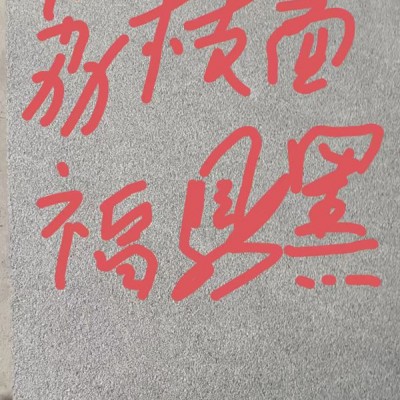 荔枝面
福鼎黑